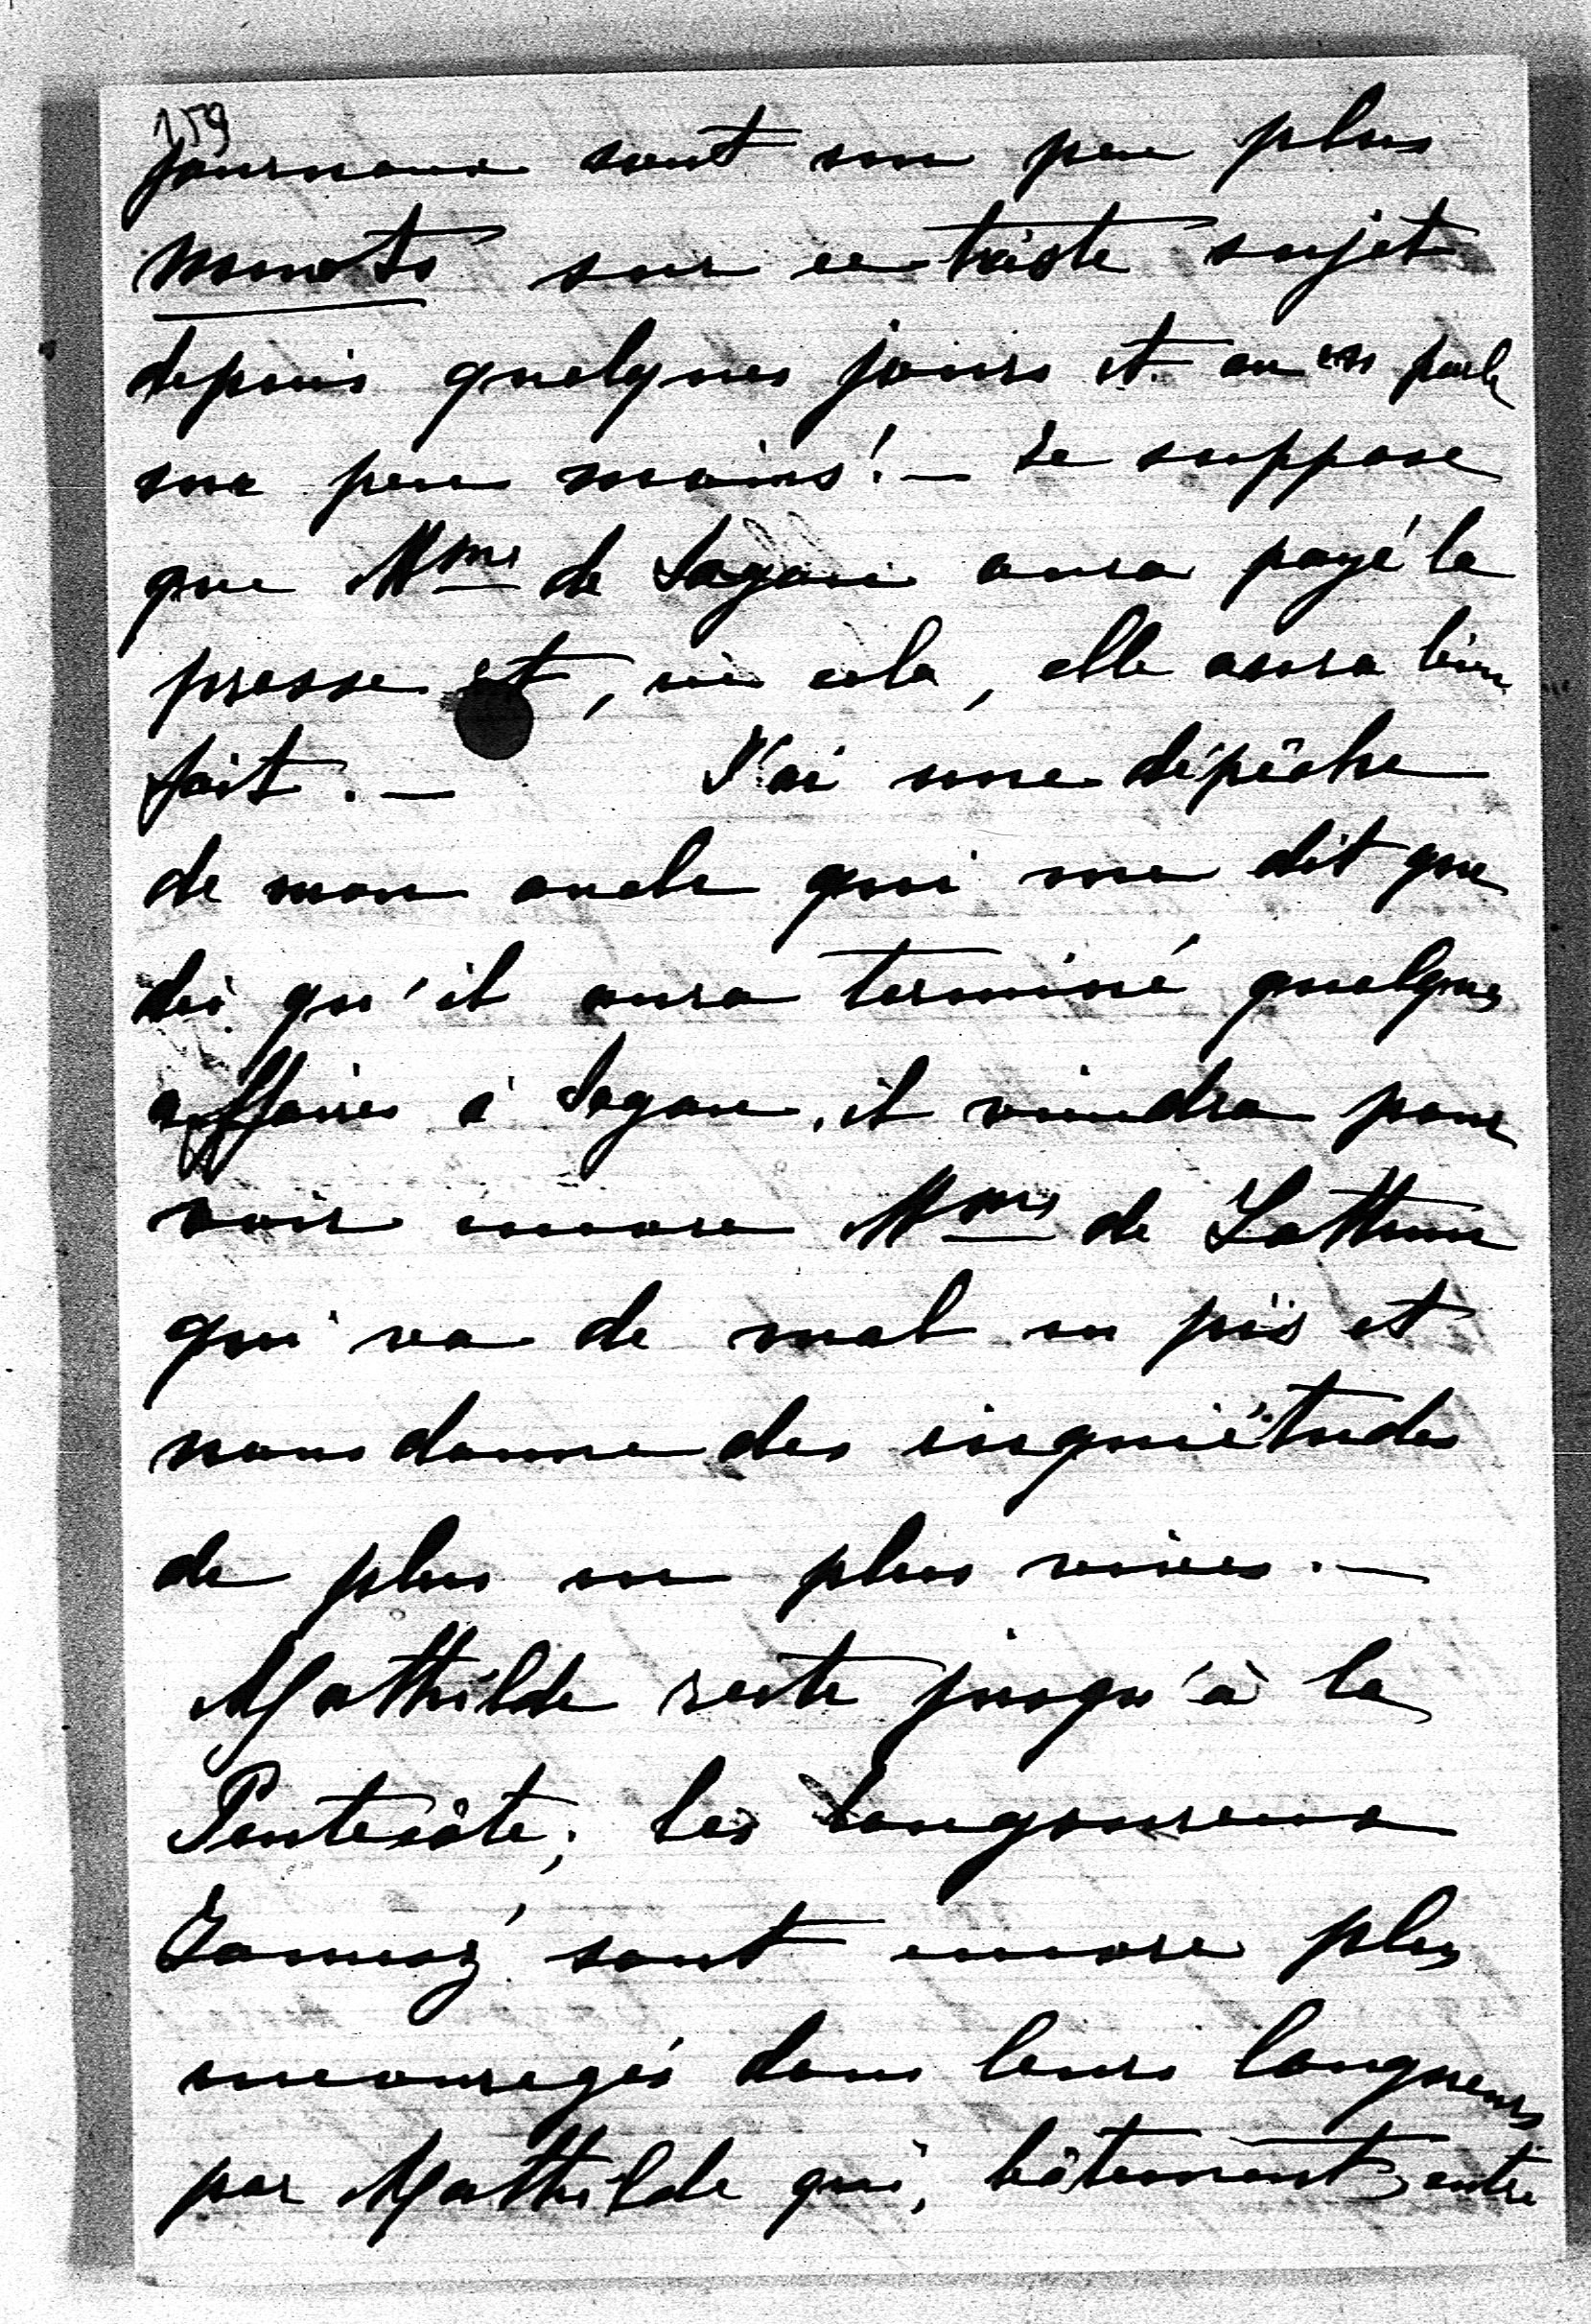 159
journaux sont un peu plus
muets sur ce triste sujet
depuis quelques jours et on en parle
un peu moins! — Je suppose
que Mme de Sagan aura payé la
presse et, si cela, elle aura bien
fait. — J'ai une dépêche
de mon oncle qui me dit que
dès qu'il aura terminé quelques
affaires à Sagan, il viendra pour
voir encore Mme de
qui va de mal en pis et
nous donne des inquiétudes
de plus en plus vives. —
Mathilde reste jusqu'à la
Pentecôte; les langoureux
sont encore plus
encouragés dans leurs langueurs
par Mathilde qui, bêtement, entre